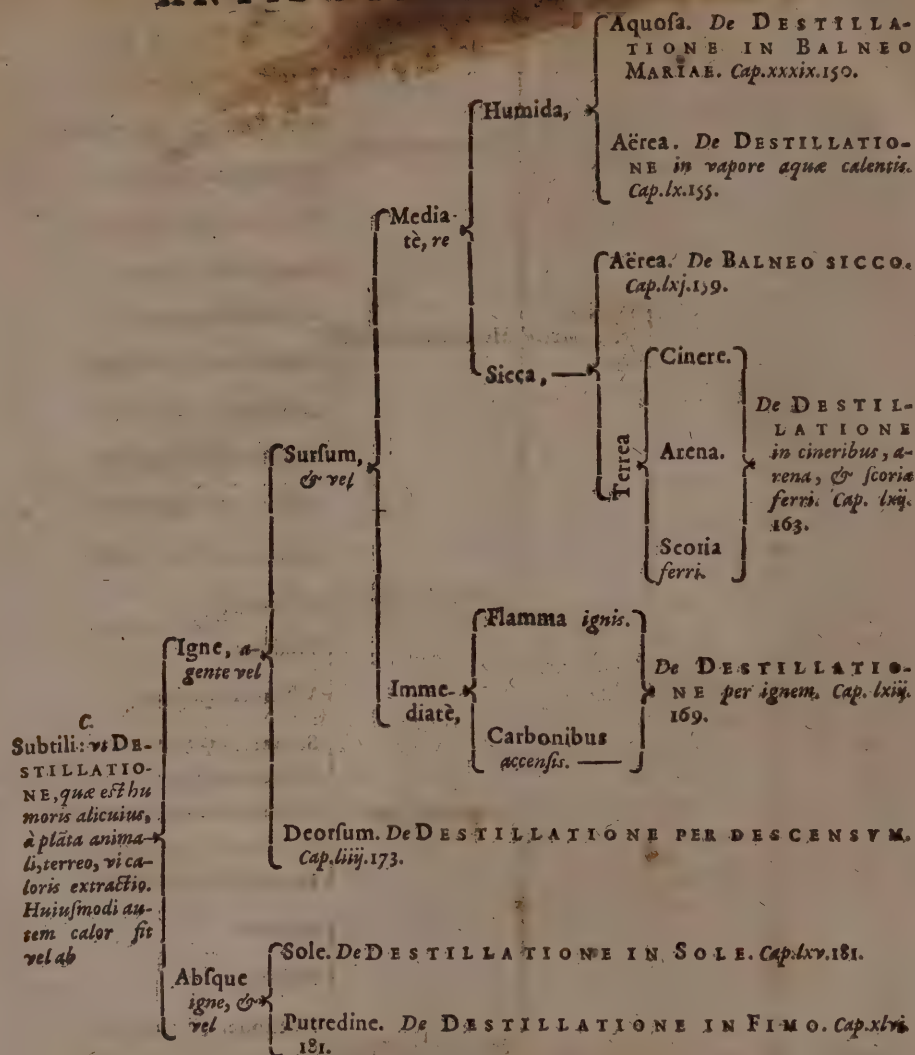 Aquoſa. De DESTILLA-
TIONE IN BALNEO
MARIAE. Cap.xxxix.150.
Humida,
Aërea. De DESTILLATIO-
NE in vapore aquæ calentis.
Cap.lx.155.
Media-
tè, re
Aërea. De BALNEO SICCO.
Cap.lxj.159.
Sicca,
Terrea
Cinere.
Arena.
Scoria
ferri.
De DESTIL-
LATIONE
in cineribus, a-
rena, & ſcoria
ferri. Cap. lxij.
163.
Surſum,
& vel
Flamma ignis.
Imme-
diatè,
Carbonibus
accenſis.
De DESTILLATIO-
NE per ignem. Cap. lxiij.
169.
Igne, a-
gente vel
C.
Subtili: vt DE-
STILLATIO-
NE, quæ eſt hu
moris alicuius,
à plãta anima-
li, terreo, vi ca-
loris extractio.
Huiuſmodi au-
tem calor fit
vel ab
Deorſum. De DESTILLATIONE PER DESCENSVM.
Cap.liiij.173.
Abſque
igne, &
vel
Sole. De DESTILLATIONE IN SOLE. Cap.lxv.181.
Putredine. De DESTILLATIONE IN FIMO. Cap.xlvi.
181.